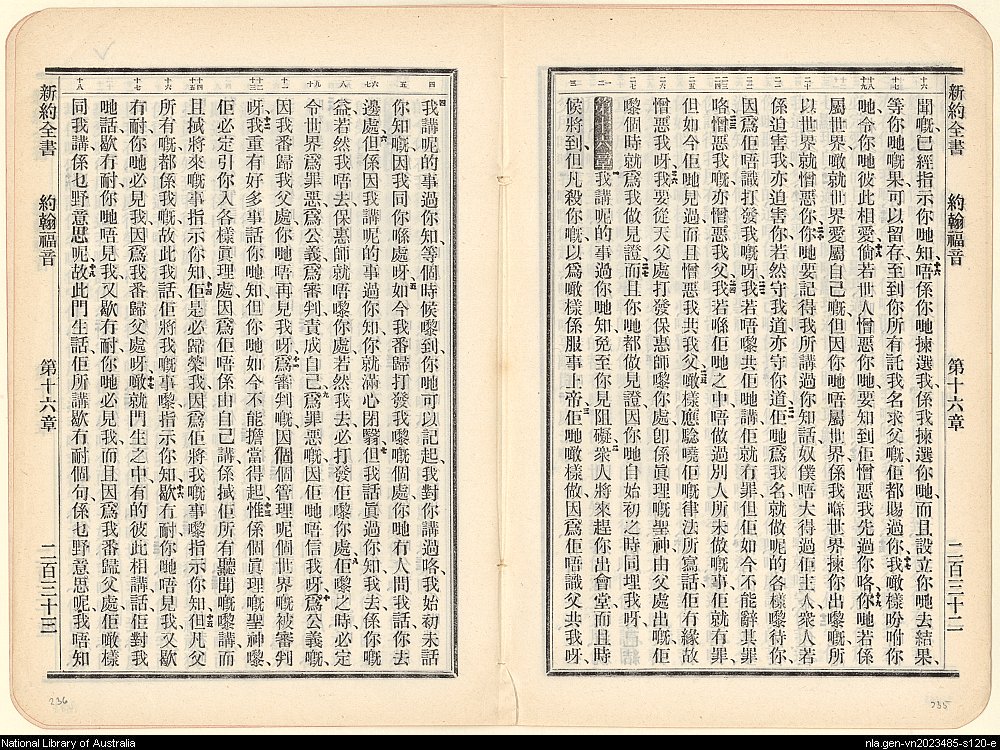 新約全書　約翰福音　第十六章　二百三十二
聞嘅、已經指示你哋知、唔係你哋揀選我、係我揀選你哋、而且設立你哋去結果、
等你哋嘅果、可以留存、至到你所有託我名求父嘅、佢都賜過你、我噉樣吩咐你
哋、令你哋彼此相愛、倘若世人憎惡你哋、要知到佢憎惡我先過你咯、你哋若係
屬世界、噉就世界愛屬自己嘅、但因你哋唔屬世界、係我喺世界揀你出嚟嘅、所
以世界就憎惡你、你哋要記得我所講過你知話、奴僕唔大得過佢主人、衆人若
係迫害我、亦迫害你、若然守我道、亦守你道、佢哋爲我名、就做呢的各樣嚟待你、
因爲佢唔識打發我嘅呀、我若唔嚟共佢哋講、佢就冇罪、但佢如今不能辭其罪
咯、憎惡我嘅、亦憎惡我父、我若喺佢哋之中、唔做過別人所未做嘅事、佢就冇罪、
但如今佢哋見過、而且憎惡我共我父、噉樣應騐嘵佢嘅律法所寫話、佢冇緣故
憎惡我呀、我要從天父處打發保惠師嚟你處、卽係眞理嘅聖神、由父處出嘅、佢
嚟個時、就爲我做見證、而且你哋都做見證、因你哋自始初之時同埋我呀、
我講呢的事過你哋知、免至你見阻礙、衆人將來趕你出會堂、而且時
候將到、但凡殺你嘅、以爲噉樣係服事上帝、佢哋噉樣做、因爲佢唔識父共我呀、
我講呢的事過你知、等個時候嚟到、你哋可以記起、我對你講過咯、我始初未話
你知嘅、因我同你喺處呀、如今我番歸打發我嚟嘅個處、你哋冇人問我話、你去
邊處、但係因我講呢的事過你知、你就滿心閉翳、但我話眞過你知、我去係你嘅
益、若然我唔去、保惠師就唔嚟你處、若然我去、必打發佢嚟你處、佢嚟之時、必定
令世界爲罪惡、爲公義、爲審判責成自己、爲罪惡嘅、因佢哋唔信我呀、爲公義嘅、
因我番歸我父處、你哋唔再見我呀、爲審判嘅、因個個管理呢個世界嘅被審判
呀、我重有好多事話你哋知、但你哋如今不能擔當得起、惟係個眞理嘅聖神嚟、
佢必定引你入各樣眞理處、因爲佢唔係由自己講、係搣佢所有聽聞嘅嚟講、而
且搣將來嘅事指示你知、佢是必歸榮我、因爲佢將我嘅事嚟指示你知、但凡父
所有嘅、都係我嘅、故此我話佢將我嘅事嚟指示你知、歇冇耐、你哋唔見我、又歇
冇耐、你哋必見我、因爲我番歸父處呀、噉就門生之中、有的彼此相講話、佢對我
哋話、歇冇耐、你哋唔見我、又歇冇耐、你哋必見我、而且因爲我番歸父處、佢噉樣
同我講、係乜野意思呢、故此門生話、佢所講歇冇耐個句、係乜野意思呢、我唔知
新約全書　約翰福音　第十六章　二百三十三
236
235
National Library of Australia
nla.gen-vn2023485-s120-e